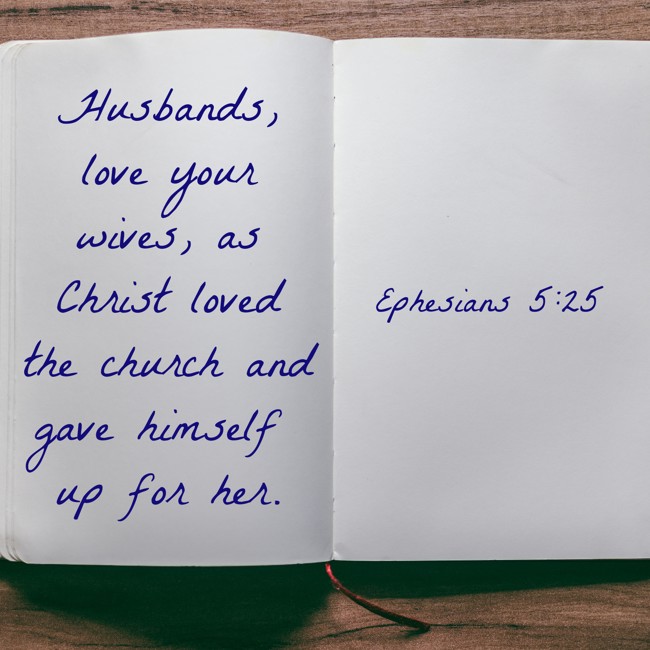 Husbands,
love your
wives, as
Christ loved
the church and
gave himself
up for her.
Ephesians 5:25